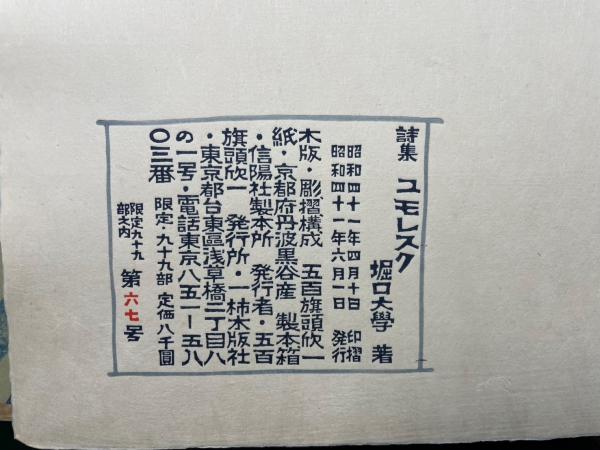 詩集 ユモレスク
堀口大學 著
昭和四十一年四月十日 印摺
昭和四十一年六月一日 発行
木版・彫摺構成 五百旗頭欣一
紙・京都府丹波黒谷産 製本箱
・信陽社製本所 発行者・五百
旗頭欣一 発行所・一柿木版社
・東京都台東區浅草橋二丁目八
の一号・電話東京八五一ー五八
〇三番 限定・九十九部 定価八千圓
限定九十九
部之内 第六七号